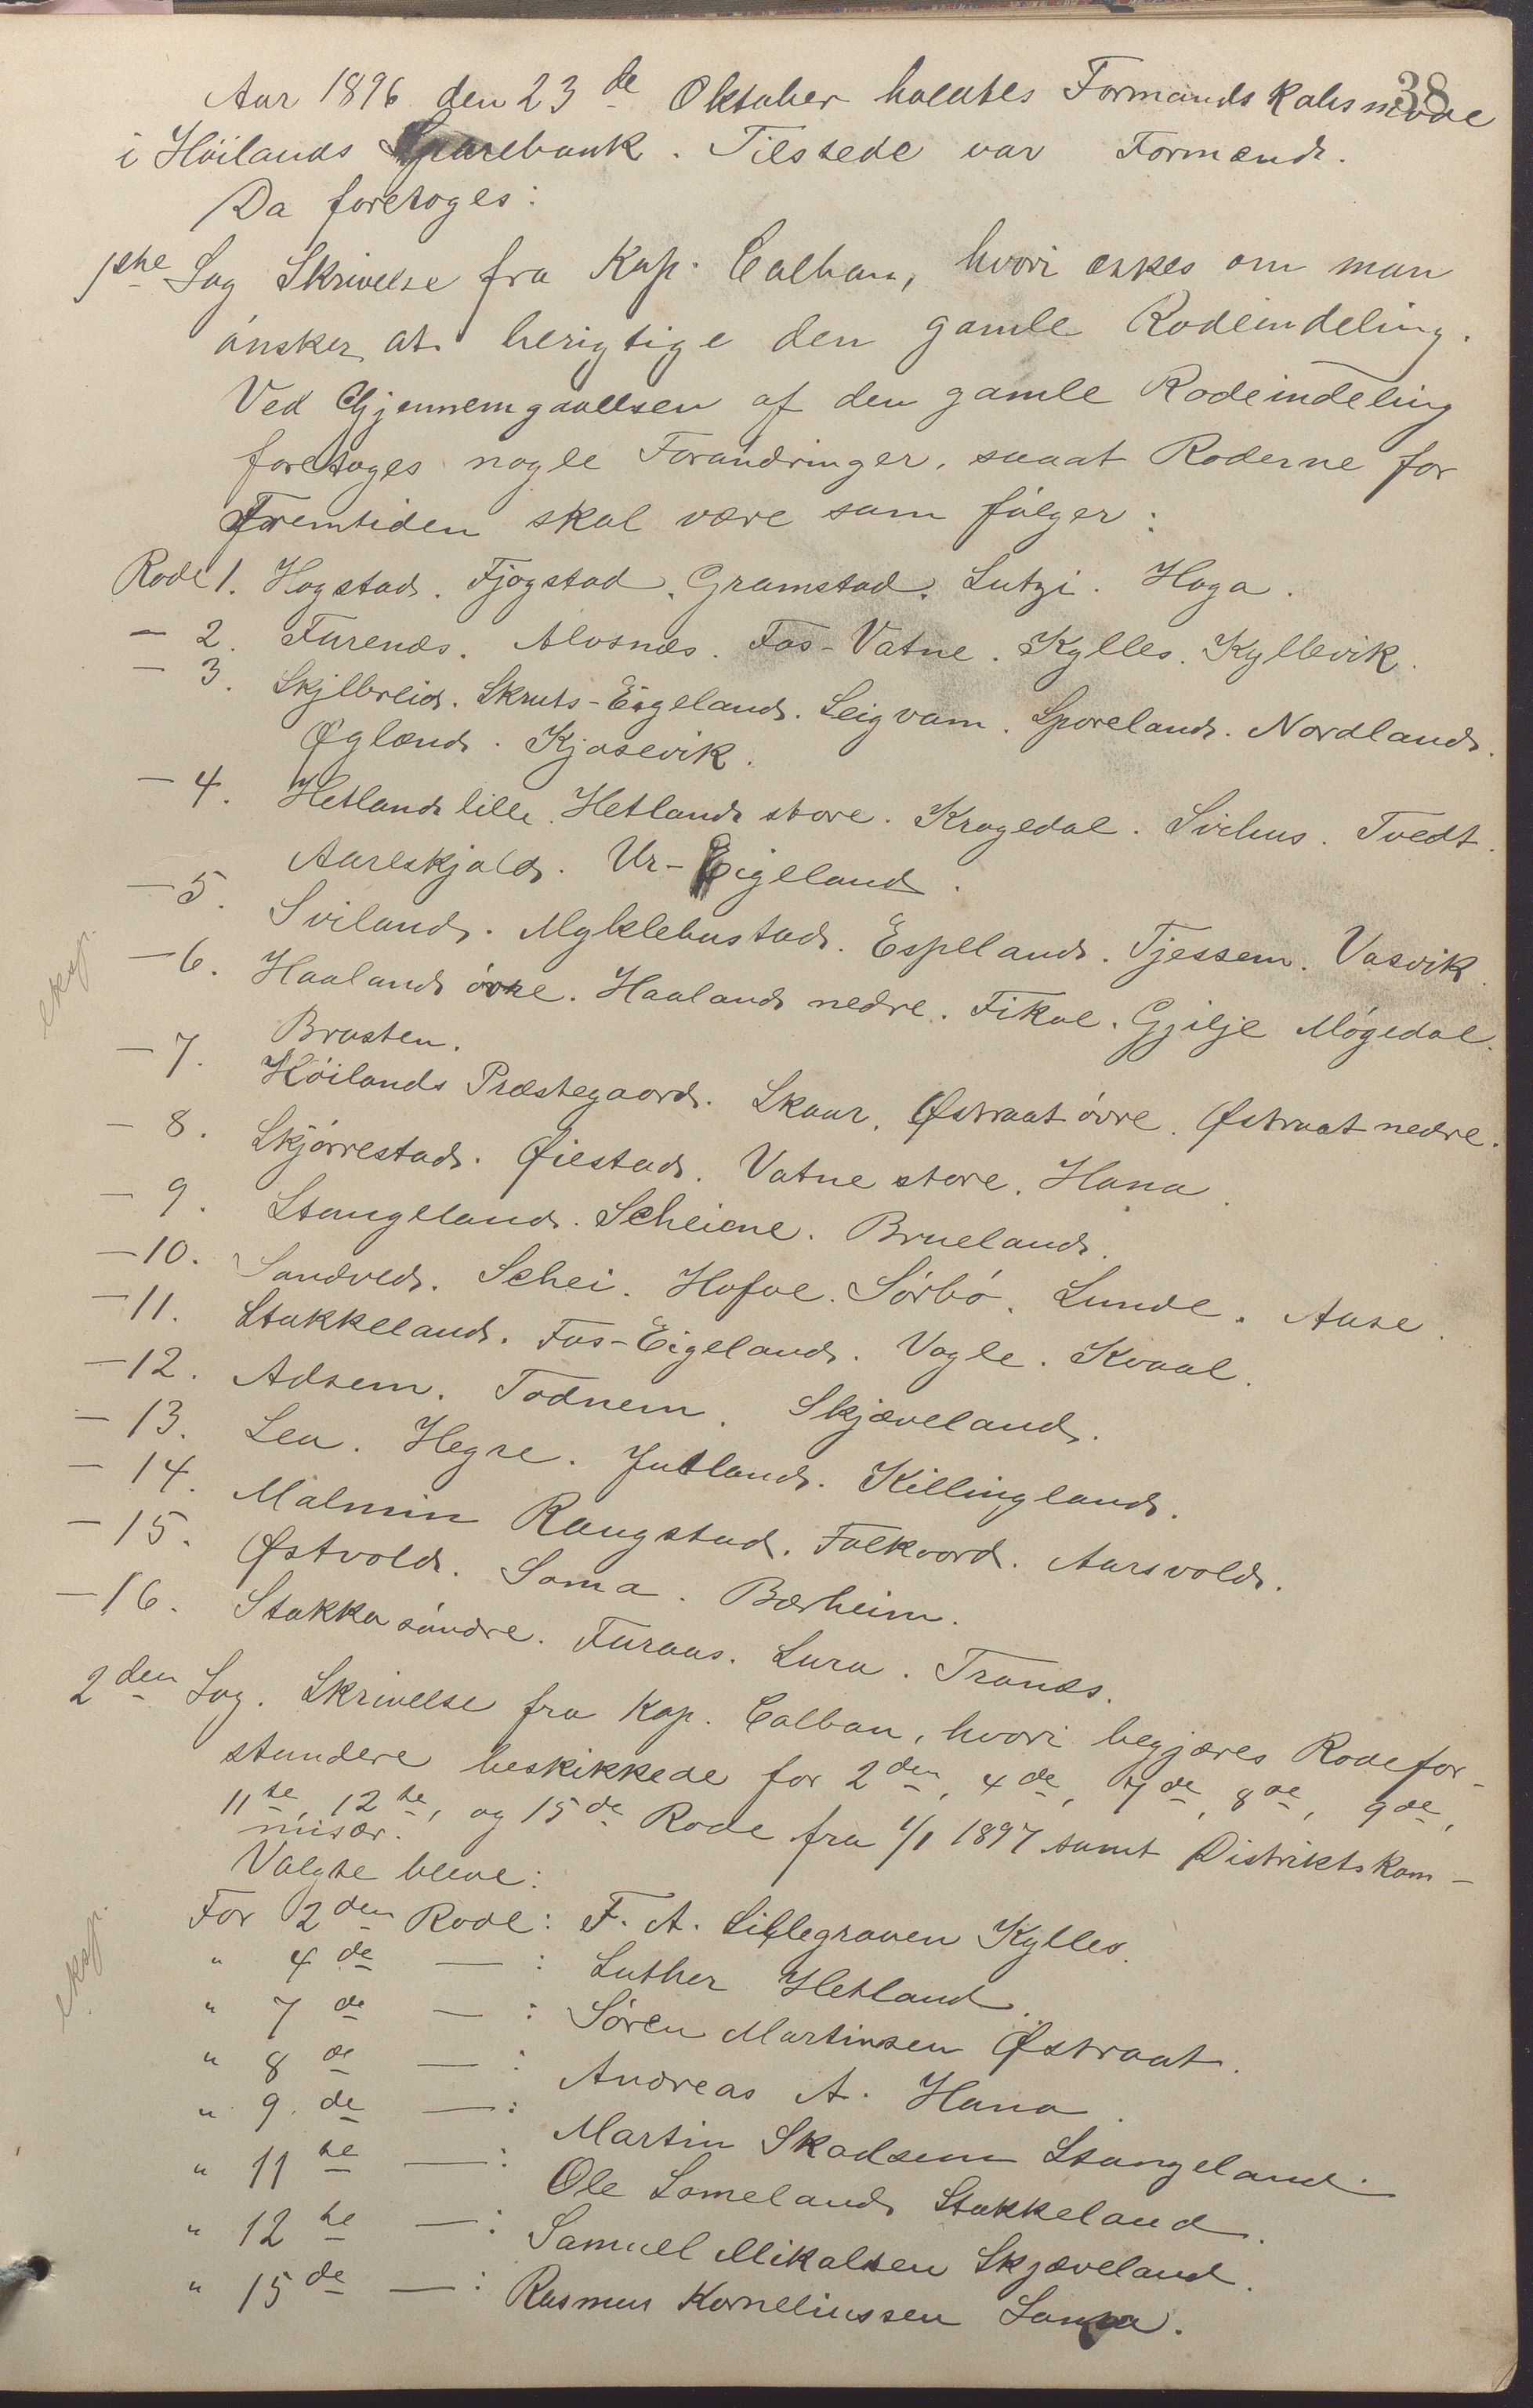 38
Aar 1896 den 23de Oktober holdtes Formandskabsmøde
i Höilands Sparebank. Tilstede var Formænd.
Da foretoges:
1ste Sag Skrivelse fra Kap. Calban, hvori æskes om man
ønsker at berigtige den gamle Rodeindeling.
Ved Gjennemgaaelsen af den gamle Rodeindeling
foretoges nogle Forandringer, saaat Roderne for
Fremtiden skal være som følger:
Rode 1. Hogstad. Fjogstad. Gramstad. Lutzi. Hoga.
— 2. Furenes. Alvsnes. Fos-Vatne. Kylles. Kyllesvik.
— 3. Skjelbreid. Skruts-Eigeland. Leigvam. Sporeland. Nordland.
Øglænd. Kjosevik.
— 4. Hetland lille. Hetland store. Kragedal. Svihus. Tvedt.
Aareskjold. Ur-Eigeland.
— 5. Sviland. Myklebustad. Espeland. Tjessem. Vasvik.
— 6. Haaland øvre. Haaland nedre. Fikal. Gjilje Møgedal.
Brasten.
— 7. Höilands Præstegaard. Skaar. Østraat øvre. Østraat nedre.
— 8. Skjørrestad. Øiestad. Vatne store. Hana.
— 9. Stangeland. Scheiene. Brueland.
— 10. Sandved. Schei. Hofve. Sørbø. Lunde. Aase.
— 11. Stokkeland. Fos-Eigeland. Vagle. Kvaal.
— 12. Adsem. Todnem. Skjæveland.
— 13. Lea. Hegre. Jutland. Killingland.
— 14. Malmin Raugstad. Folkvord. Aarsvold.
— 15. Østvold. Soma. Bærheim.
— 16. Stokka søndre. Furaas. Lura. Tronæs.
2den Sag. Skrivelse fra Kap. Calban, hvori begjæres Rodefor-
standere beskikkede for 2den, 4de, 7de, 8de, 9de,
11te, 12te, og 15de Rode fra 1/1 1897 samt Distriktskom-
misær.
Valgte bleve:
For 2den Rode: F. A. Lillegraven Kylles.
" 4de — : Luther Hetland.
" 7de — : Søren Martinsen Østraat.
" 8de — : Andreas A. Hana.
" 9de — : Martin Skadsem Stangeland.
" 11te — : Ole Lomeland Stokkeland.
" 12te — : Samuel Mikalsen Skjæveland.
" 15de — : Rasmus Korneliussen Soma.
eksp.
eksp.